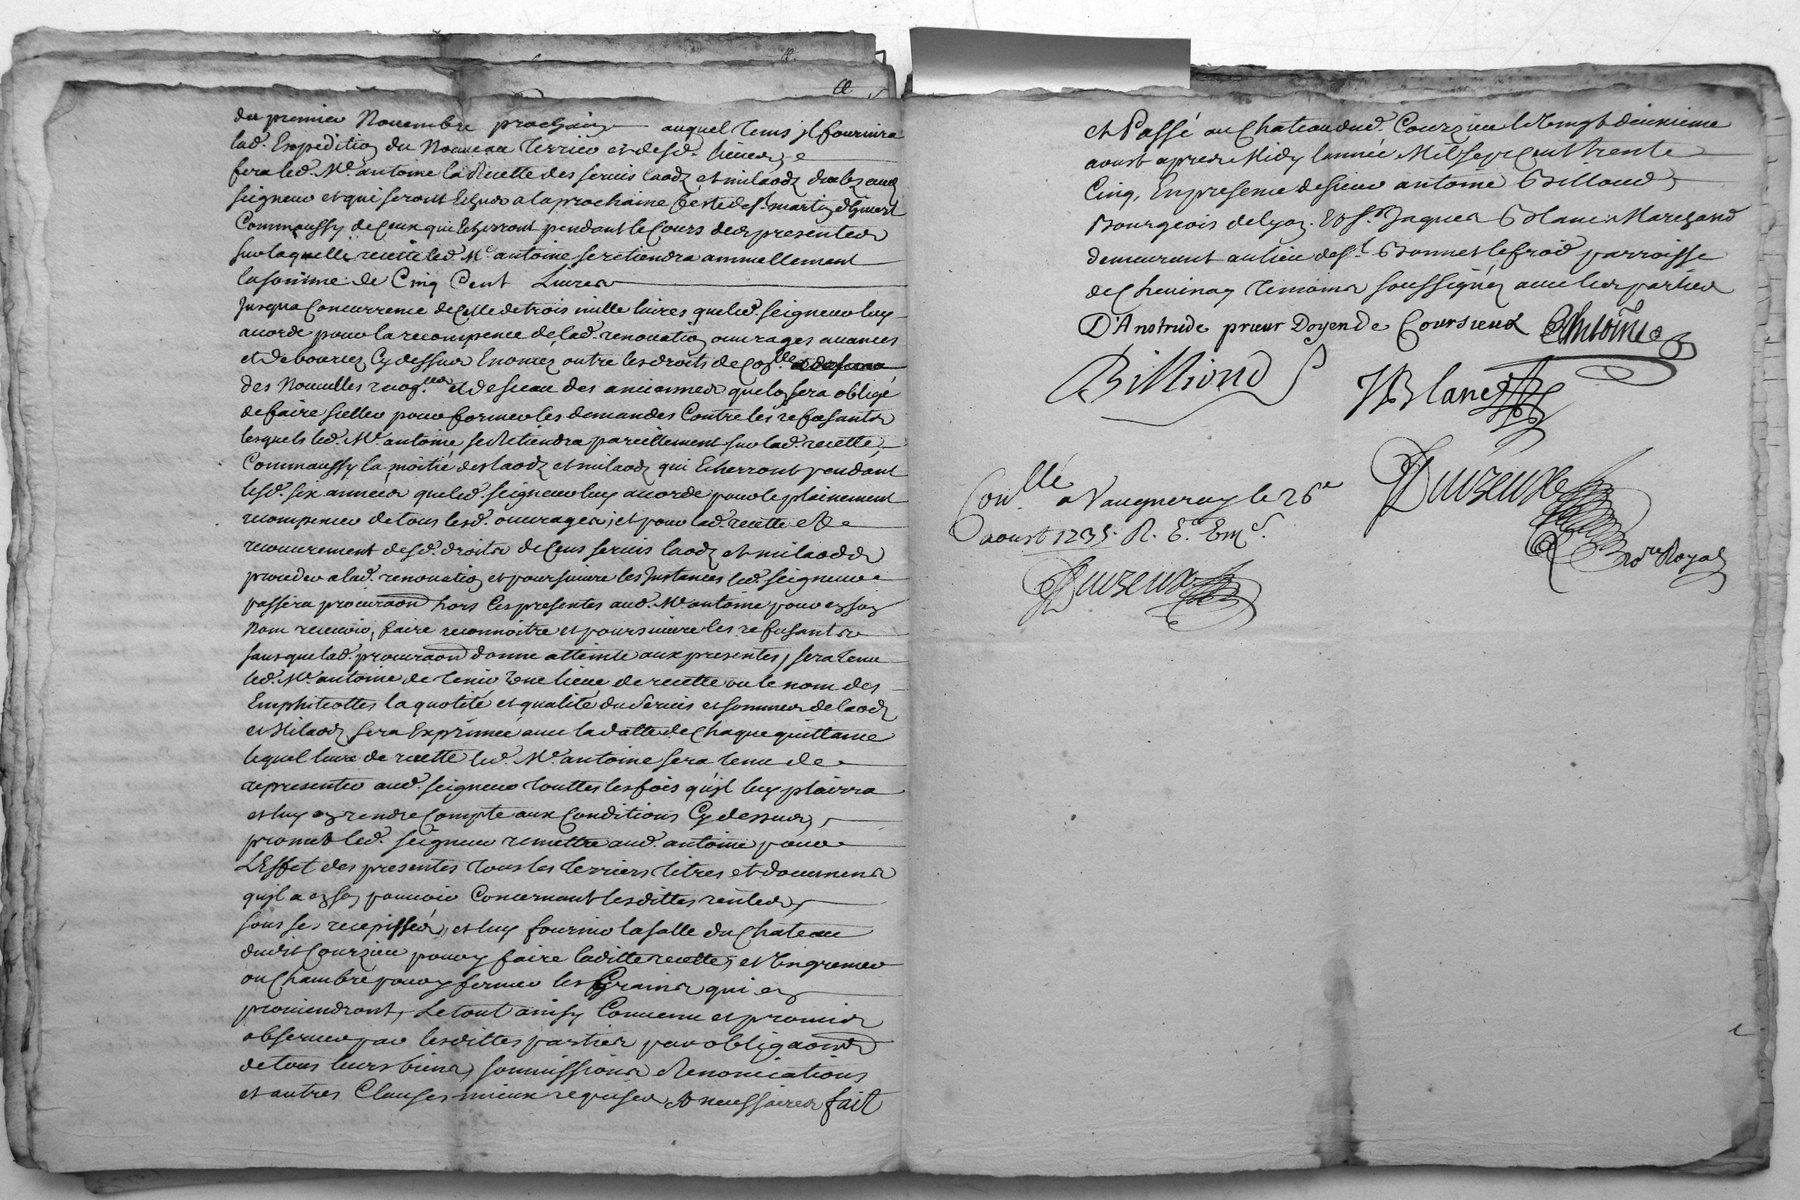 du premier Novembre prochain auquel tems jl fournira
lad. Expedition du Nouveau terrier et desd. lieues
fera led. Me. antoine la Recette des servis laodz et milaodz deubz aud.
seigneur et qui seront Echus a la prochaine feste de st. martin d'hiver
Commaussy de Ceux qui Echerront pendant le Cours des presentes
sur laquelle recette led. Me. antoine se retiendra annuellement
la somme de Cinq Cent Livres
jusqua Concurrence de Celle de trois mille livres que led. seigneur luy
acorde pour la recompence de lad. renovation ouvrages avances
et debources Cy dessus Enonces outre les droits de Conlle.
des Nouvelles recogces. et de sceau des anciennes quelon sera obligé
de faire seeller pour former les demandes Contre les refusants
lesquels led. Me. antoine se Retiendra pareillement sur lad. recette,
Commaussy la moitié des laodz et milaodz qui Echerront pendant
lesd. six années que led. seigneur luy acorde pour le plainement
recompence de tous lesd. ouvrages, et pour lad. recette et
recouvrement desd. droits de Cens servis laodz et milaodz
proceder a lad. renovation et poursuivre les Instances led. seigneur
passera procuraon hors les presentes aud. Me. antoine pour en son
Nom recevoir, faire reconnoitre et poursuivre les refusants
sans que lad. procuraon donne atteinte aux presentes, sera tenu
led. Me. antoine de tenir une lieue de recette ou le nom des
Emphiteottes la quotité et qualité du servis et sommes de laodz
et Milaodz sera Exprimée avec la datte de Chaque quittance
lequel livre de recette led. Me. antoine sera tenu de
representer aud. seigneur touttes les fois qu'jl luy plairra
et luy en rendre Compte aux Conditions Cy dessus,
promet led. seigneur remettre aud. antoine pour
L'Effet des presentes tous les terriers titres et documens
qu'jl a en son pouvoir Concernant lesdittes rentes,
sous ses recepissés, et luy fournir la salle du Chateau
dudit Courzieu pour y faire laditte recette, et Un grenier
ou Chambre pour y fermer les Grains qui en
proviendront, Le tout ainsy Convenu et promis
observer par lesdittes parties par obligaons
de tous leurs biens, soumissions Renonciations
et autres Clauses mieux requises et necessaires fait
et Passé au Chateau dud. Courzieu le Vingt deuxieme
aoust apres Midy l'année Mil sept Cent trente
Cinq, En presence de sieur antoine Billiond
Bourgeois de lyon. Et sr. Jaques Blanc Marchand
demeurant au lieu de st. Bonnet le froid parroisse
de Chevinay temoins soussignez avec les parties
D'Anstrude prieur Doyen de Coursieux Antoine
Billiond JBlanc
Conllé a Vaugneray le 26e
aoust 1735. R. Duvzeux
Duvzeux nore Royal